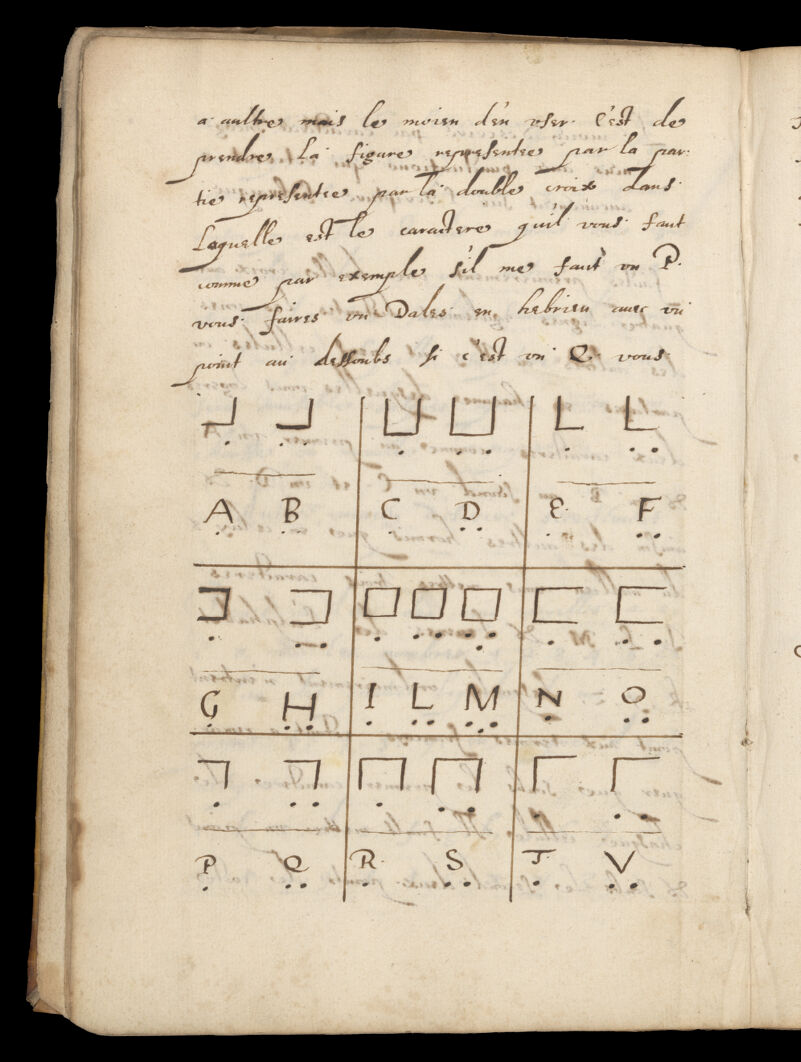 a aultre mais le moien d'en vser C'est de
prendre La figure representee par la par
tie representee par la double croix dans
Laquelle est le caractere qu'il vous faut
comme par exemple s'il me faut vn P.
vous faires vn Dales en hebrieu auec vn
point au dessoubs si c'est vn Q vous
A B C D E F
G H I L M N O
P Q R S T V